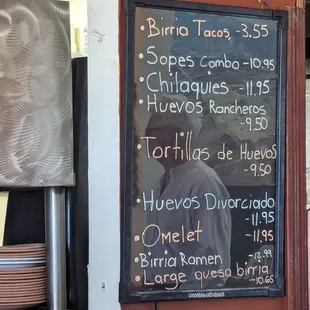 • Birria Tacos -3.55
• Sopes Combo -10.95
• Chilaquies -11.95
• Huevos Rancheros
-9.50
• Tortillas de Huevos
-9.50
• Huevos Divorciado
-11.95
• Omelet -11.95
• Birria Ramen -12.99
• Large quesa birria
-10.65